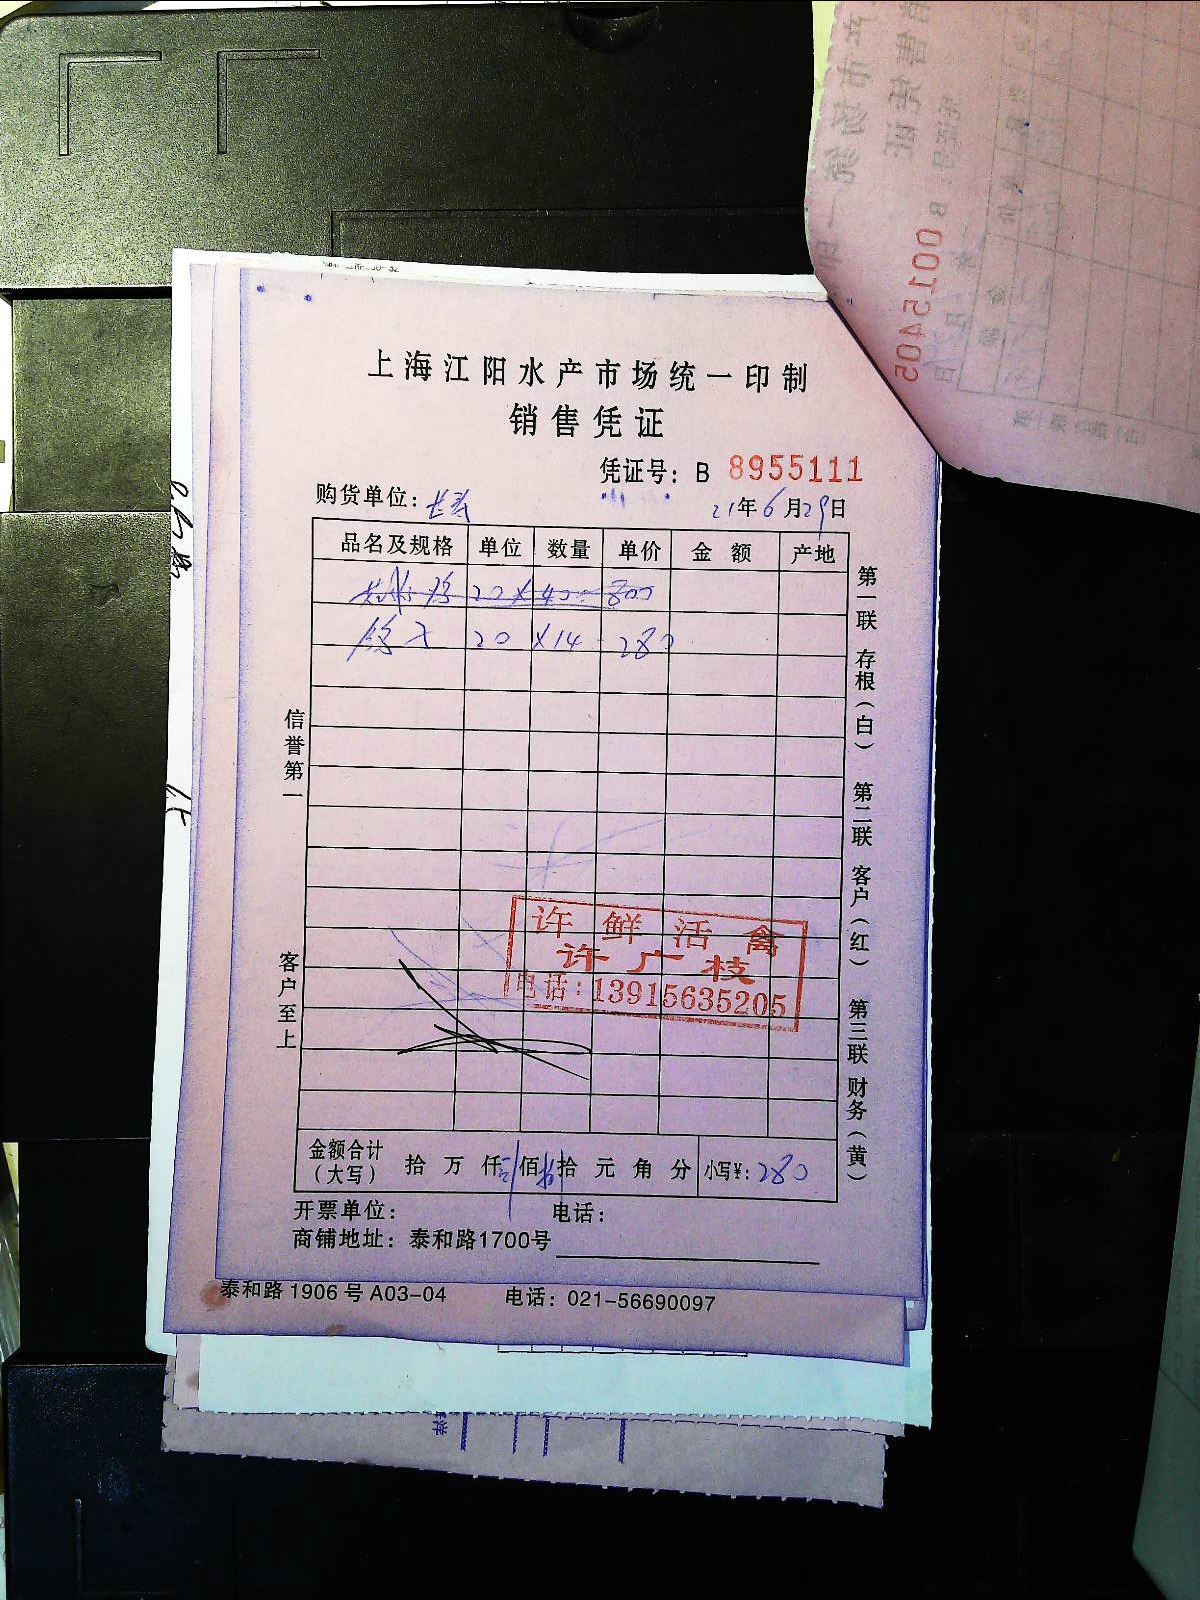 上海江阳水产市场统一印制
销售凭证
凭证号：B 8955111
购货单位：
21年6月29日
品名及规格 单位 数量 单价 金额 产地
20 X 40 800
20 X14 280
信誉第一
客户至上
第一联 存根（白） 第二联 客户（红） 第三联 财务（黄）
许鲜活禽
许广枝
电话：13915635205
金额合计（大写） 拾 万 仟 佰 拾 元 角 分 小写¥：280
开票单位： 电话：
商铺地址：泰和路1700号
泰和路1906号A03-04 电话：021-56690097
B0015405